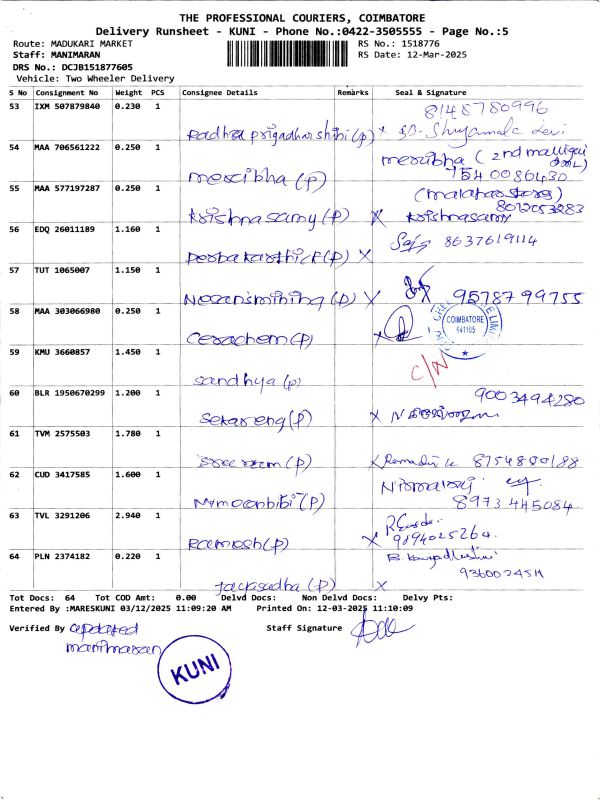 THE PROFESSIONAL COURIERS, COIMBATORE
Delivery Runsheet - KUNI - Phone No.:0422-3505555 - Page No.:5
Route: MADUKARI MARKET RS No.: 1518776
Staff: MANIMARAN RS Date: 12-Mar-2025
DRS No.: DCJB151877605
Vehicle: Two Wheeler Delivery
S No Consignment No Weight PCS Consignee Details Remarks Seal & Signature
53 IXM 507879840 0.230 1 8148780996
Radha prigadharshini (p) x Shyamala Devi
54 MAA 706561222 0.250 1 mercibha (2nd
mercibha (p) 7540086430
55 MAA 577197287 0.250 1 (malabar stores)
8012053283
krishnasamy (p) x krishnasamy
56 EDQ 26011189 1.160 1 8637619114
(p) x
57 TUT 1065007 1.150 1
(p) x 95787 99755
58 MAA 303066980 0.250 1 COIMBATORE
641105
Cerachem (p) x
59 KMU 3660857 1.450 1 C/N
sandhya (p)
60 BLR 1950670299 1.200 1 9003494280
Sekareng (p) x
61 TVM 2575503 1.780 1
Sree ram (p) x 8754800188
62 CUD 3417585 1.600 1
Nymoonbibi (p) 8973 445084
63 TVL 3291206 2.940 1
Ramesh (p) x 9894025264
64 PLN 2374182 0.220 1
Jayasudha (p) x
Tot Docs: 64 Tot COD Amt: 0.00 Delvd Docs: Non Delvd Docs: Delvy Pts:
Entered By :MARESKUNI 03/12/2025 11:09:20 AM Printed On: 12-03-2025 11:10:09
Verified By updated Staff Signature
manimaran
KUNI